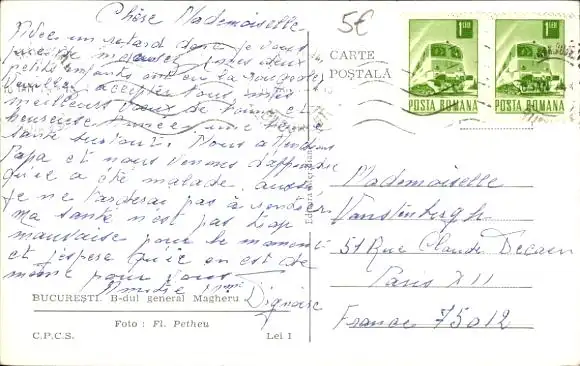 Chère Mademoiselle
Avec un retard dont je vous
mes deux
petits enfants ont eu la rougeole
Veuillez accepter nos
meilleurs vœux de bonne et
heureuse année une bonne
santé surtout. Nous attendions
Papa et nous venons d'apprendre
qu'il a été malade, aussi
je ne tarderai pas à rentrer
Ma santé n'est pas trop
mauvaise pour le moment
et j'espère qu'il en est de
même pour vous
Amitié
5€
CARTE
POŞTALĂ
1 LEU
POSTA ROMANA
1 LEU
POSTA ROMANA
Mademoiselle
Vanstenbergh
51 Rue Claude Decaen
Paris XII
France 75012
BUCUREŞTI. B-dul general Magheru
Foto : Fl. Petheu
C.P.C.S.
Lei 1